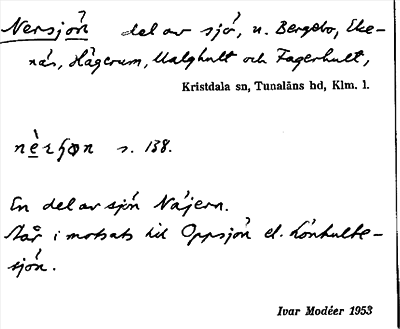 Nersjön del av sjö, u. Bergebo, Eke-
näs, Hägerum, Malghult och Fagerhult,
Kristdala sn, Tunaläns hd, Klm. l.
s. 138.
En del av sjön Näjern.
Står i motsats till Oppsjön el. Lönhulte-
sjön.
Ivar Modéer 1953